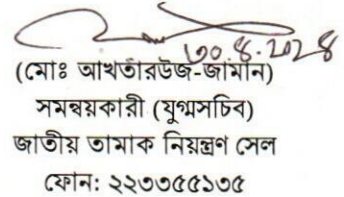 ৩০.৪.২০২৪
(মোঃ আখতারউজ-জামান)
সমন্বয়কারী (যুগ্মসচিব)
জাতীয় তামাক নিয়ন্ত্রণ সেল
ফোন: ২২৩৩৫৫১৩৫